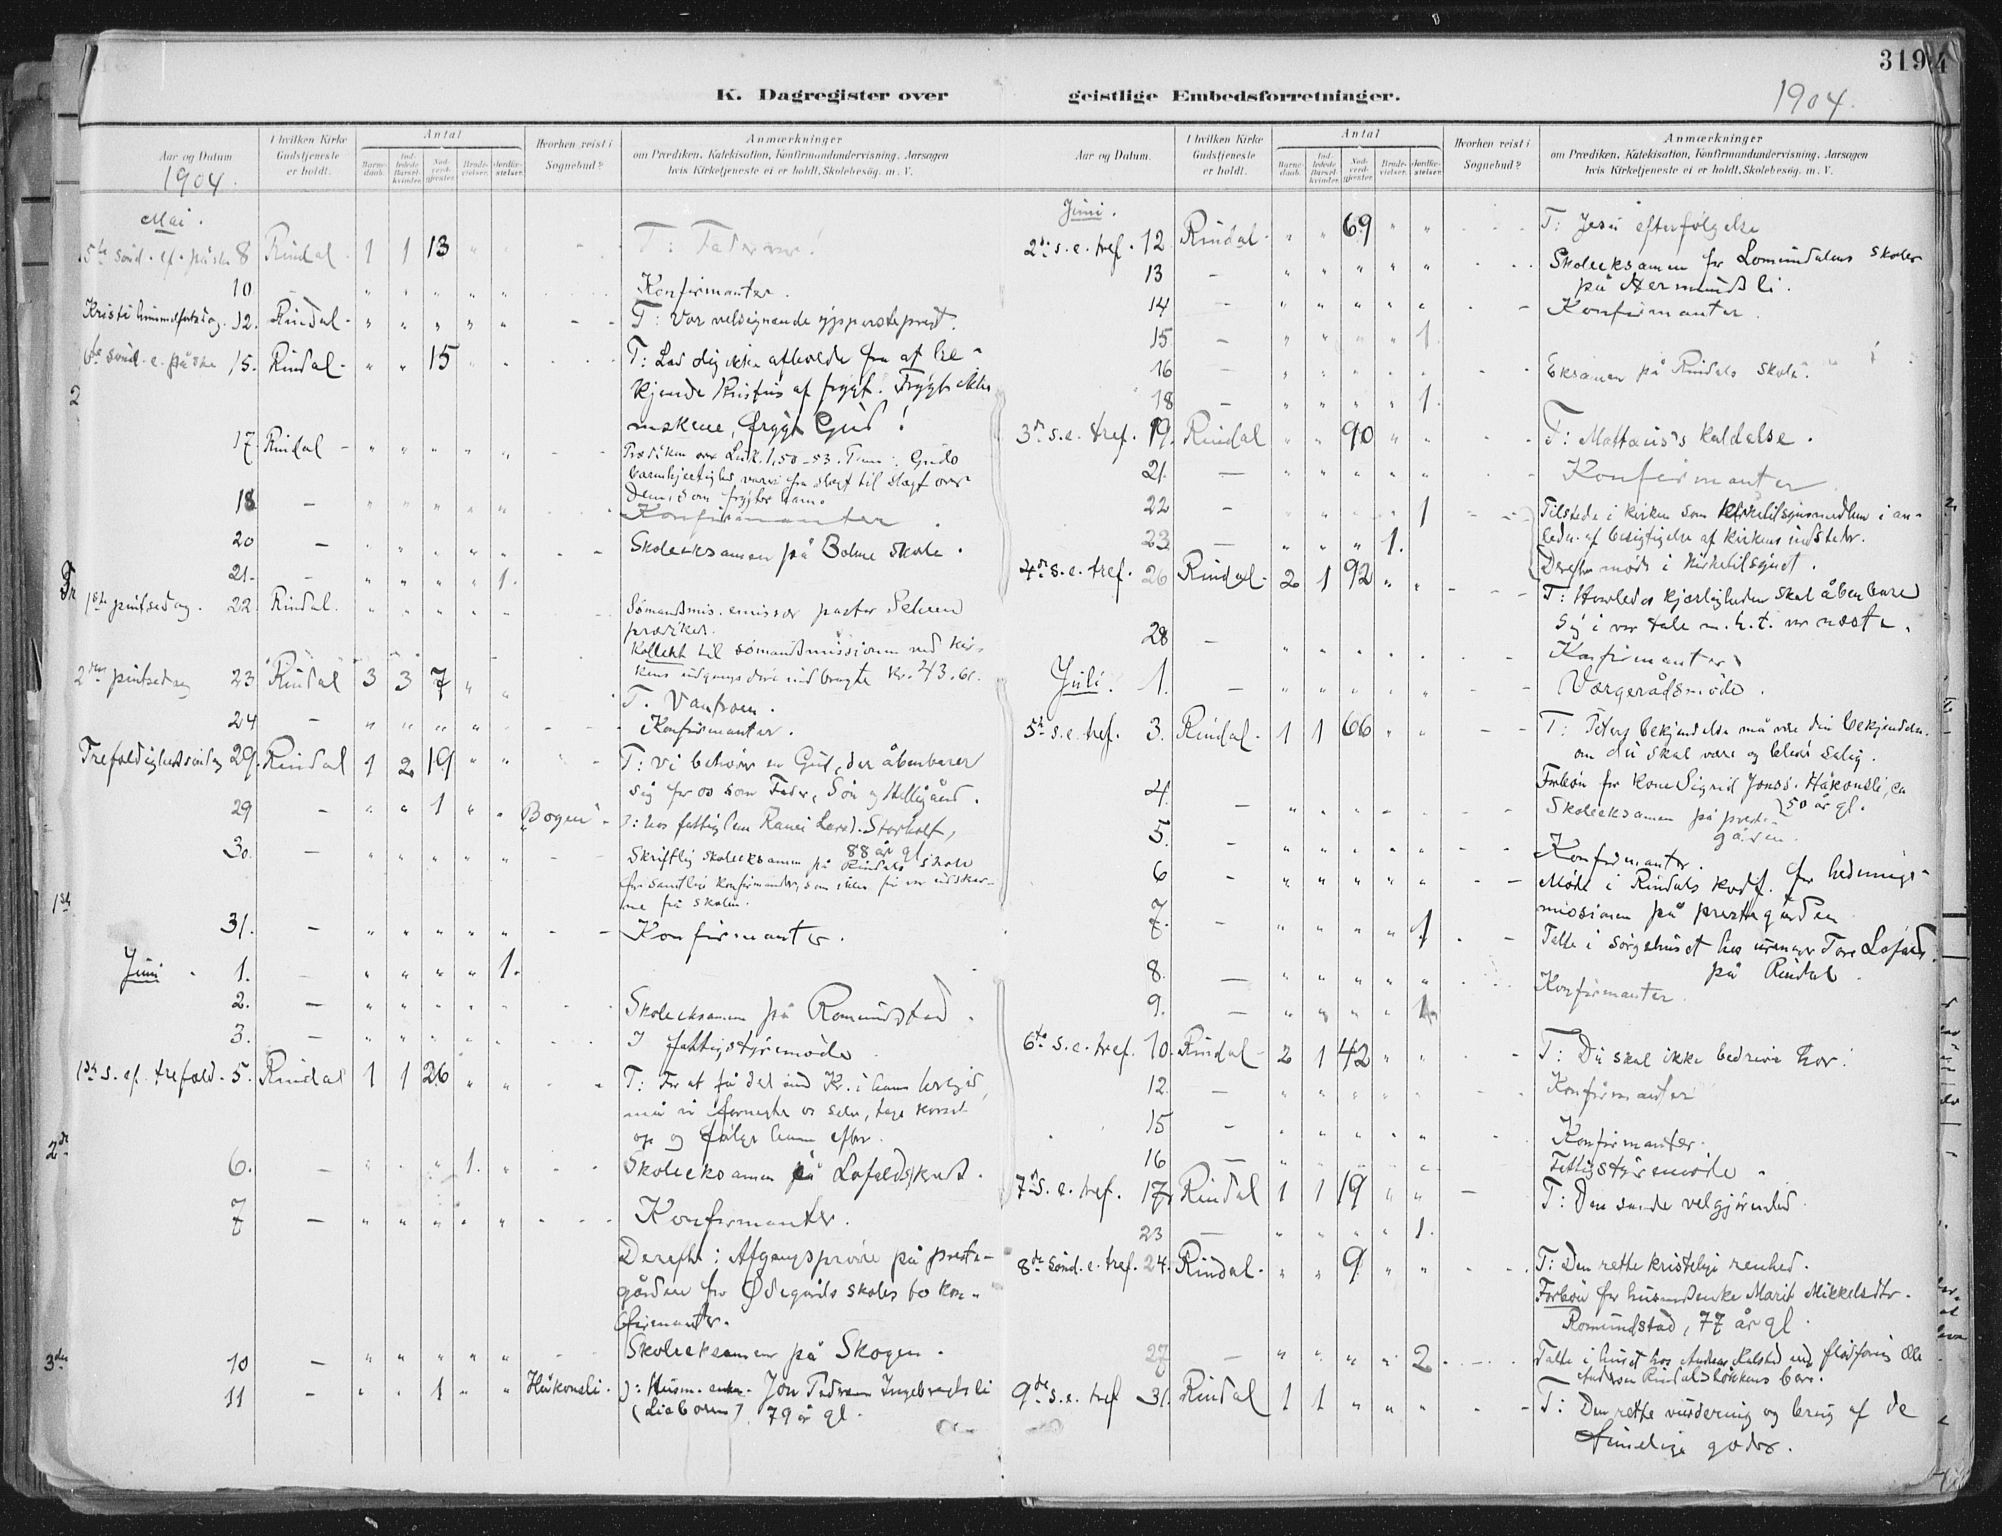 319
K. Dagregister over geistlige Embedsforretninger.
1904.
Aar og Datum
1904.
I hvilken Kirke Gudstjeneste er holdt.
Antal
Barnedaab.
Indledede Barselkvinder.
Nadverdgjester.
Brudevielser.
Jordfæstelser.
Hvorhen reist i Sognebud?
Anmærkninger
om Prædiken, Katekisation, Konfirmandundervisning, Aarsagen
hvis Kirketjeneste ei er holdt, Skolebesøg. m. V.
Mai.
5te sønd. ef. påske 8 Rindal 1 1 13 " " T: Fader vor!
10 " " " " " Konfirmanter.
Kristi himmelfartsdag. 12. Rindal - " " " " " T: Vor velsignende yppersteprest.
6te sønd. e. påske 15. Rindal - " " 15 " T: Lad dig ikke afholde fra at be-
kjende Kristus af frygt. Frygt ikke
mskene, frygt Gud!
17. Rindal - " " " " " Prædiken over Luk. 1,50-53. Tema: Guds
barmhjertighed varer fra slægt til slægt over
dem, som frygter ham.
18 - " " " " " Konfirmanter.
20 - " " " " Skoleeksamen på Bolme skole.
21. - " " " " 1.
1ste pintsedag. 22 Rindal. " " " " Sømandsmis. emissær pastor
prædiker.
Kollekt til sømandsmissionen ved kir-
kens udgangsdøre indbragte kr. 43.60.
2den pintsedag 23 Rindal 3 3 7 " " T. Vantroen.
24 - " " " " Konfirmanter.
Trefoldighedssøndag 29. Rindal 1 2 19 " " T: Vi behøver en Gud, der åbenbarer
sig for os som Fader, Søn og Helligånd.
29 - " " 1 " " "Bogen" - ɔ: hos fattiglem Ranei Larsd. Storholt,
88 år gl
30. - " " " " " Skriftlig skoleeksamen på Rindals skole
for samtlige konfirmander, som ikke før var udskrev-
ne fra skolen.
31. - " " " " " Konfirmanter.
Juni 1. - " " " " 1.
2. - " " " " Skoleeksamen på Romundstad.
3. - " " " " I fattigstyremøde
1ste s. ef. trefold. 5. Rindal 1 1 26 " " T: For at få del med Kr. i hans herlighed,
må vi fornegte os selv, tage korset
op og følge ham efter.
6. - " " " 1. " Skoleeksamen på Lofaldskred.
7 - " " " " " Konfirmanter.
Derefter: Afgangsprøve på preste-
gården for Ødegårds skoles to kon-
firmanter.
10 - " " " " " Skoleeksamen på Skogen.
11 - " " 1 " " Håkonsli. ɔ: Husm. enkem. Jon Pedersen Ingebregtsli
(Liaboren), 79 år gl.
Aar og Datum.
I hvilken Kirke Gudstjeneste er holdt.
Antal
Barnedaab.
Indledede Barselkvinder.
Nadverdgjester.
Brudevielser.
Jordfæstelser.
Hvorhen reist i Sognebud?
Anmærkninger
om Prædiken, Katekisation, Konfirmandundervisning, Aarsagen
hvis Kirketjeneste ei er holdt, Skolebesøg. m. V.
Juni.
2den s. e. tref. 12. Rindal. " " 69 " " T: Jesu efterfølgelse
13 - " " " " " Skoleeksamen for Lomundalens skoler
på Hermundsli.
14 - " " " " " Konfirmanter.
15 - " " " " 1.
16 - " " " " " Eksamen på Rindals skole.
18 - " " " " 1.
3die s. e. tref. 19. Rindal " " 90 " " T: Mattæus's kaldelse.
21. - " " " " " Konfirmanter
22 - " " " " 1 Tilstede i kirken som kirketilsynsmedlem i an-
ledn. af besigtigelse af kirkens indstektr.
23 - " " " 1. Derefter møde i Kirketilsynet.
4de s. e. tref. 26 Rindal. 2 1 92 " " T: Hvorledes kjærligheden skal åbenbare
sig i vor tale m. h. t. vor næste.
28 - " " " " Konfirmanter.
Juli. 1. - " " " " " Værgerådsmøde.
5te s. e. tref. 3. Rindal. 1 1 66 " " T: Peters bekjendelse må være din bekjendelse,
om du skal være og blive salig.
Forbøn for kone Sigrid Jonsd. Håkonsli, ca
50 år gl.
4. - " " " " " Skoleeksamen på preste-
gården.
5. - " " " " " Konfirmanter.
6 - " " " " " Møde i Rindals krdsf. for hednings-
missionen på prestegården
7. - " " " " 1 Talte i sørgehuset hos urmager Tore Løfald
på Rindal.
8. - " " " " " Konfirmanter.
9. - " " " " 1
6te s. e. tref. 10. Rindal - 2 1 42 " " T: Du skal ikke bedrive hor!
12. - " " " " Konfirmanter
15 - " " " " Konfirmanter.
16 - " " " " " Fattigstyremøde.
7de s. e. tref. 17. Rindal 1 1 19 " " T: Den sande velgjørenhed.
23 - " " " " 1.
8de sønd. e. tref. 24. Rindal. " " 9 " " T: Den rette kristelige renhed.
Forbøn for husmdsenke Marit Mikkelsdtr.
Romundstad, 77 år gl.
27 - " " " " 2 Talte i huset hos Anders ved
Andersen Rindalsløkkens bår.
9de s. e. tref 31. Rindal 1 1 " " " T: Den rette vurdering og brug af de
timelige goder.